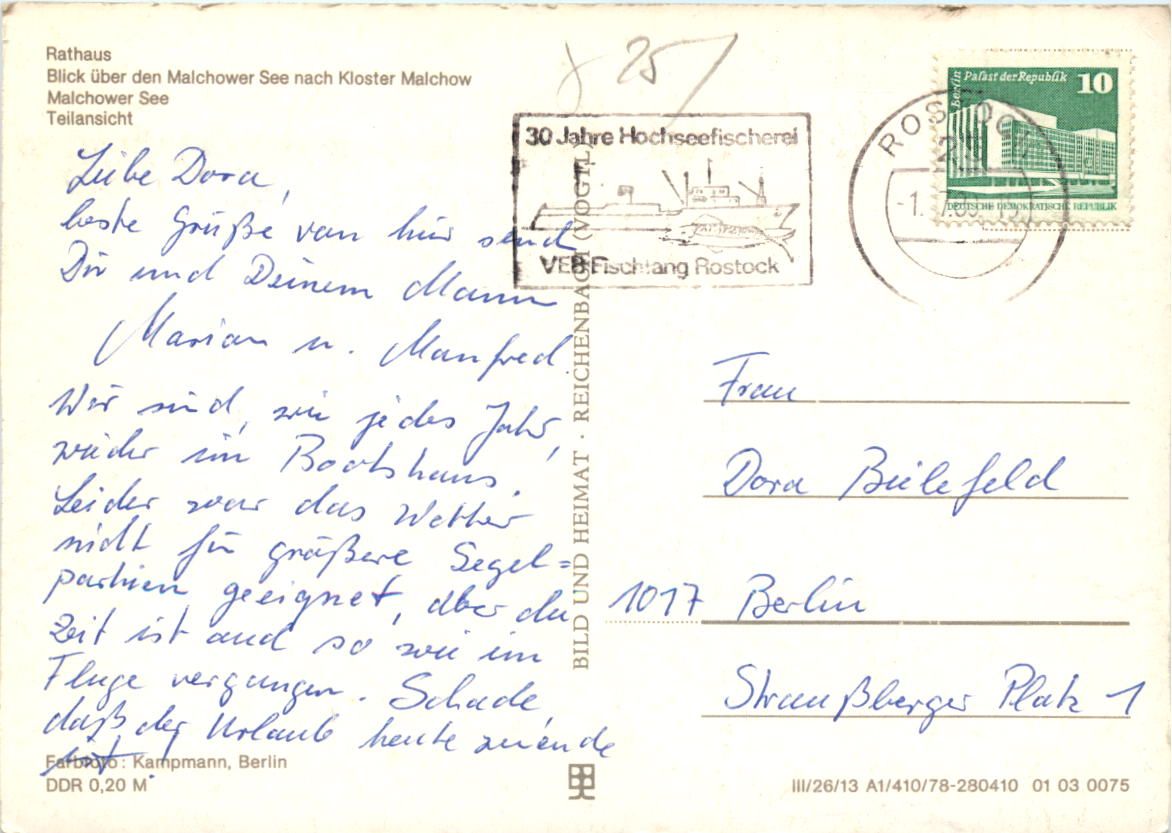 Rathaus
Blick über den Malchower See nach Kloster Malchow
Malchower See
Teilansicht
25
30 Jahre Hochseefischerei
VEB Fischfang Rostock
ROSTOCK
Berlin
Palast der Republik
10
DEUTSCHE DEMOKRATISCHE REPUBLIK
Liebe Dora,
beste Grüße von hier send
Dir und Deinem Mann
Marian u. Manfred.
Wir sind, wie jedes Jahr,
wieder im Bootshaus.
Leider war das Wetter
nicht für größere Segel=
partien geeignet, aber die
Zeit ist auch so wie im
Fluge vergangen. Schade,
daß der Urlaub heute zuende
ist.
Farbfoto: Kampmann, Berlin
DDR 0,20 M
BILD UND HEIMAT · REICHENBACH (VOGTL
Frau
Dora Bielefeld
1017 Berlin
Straußberger Platz 1
III/26/13 A1/410/78-280410 01 03 0075